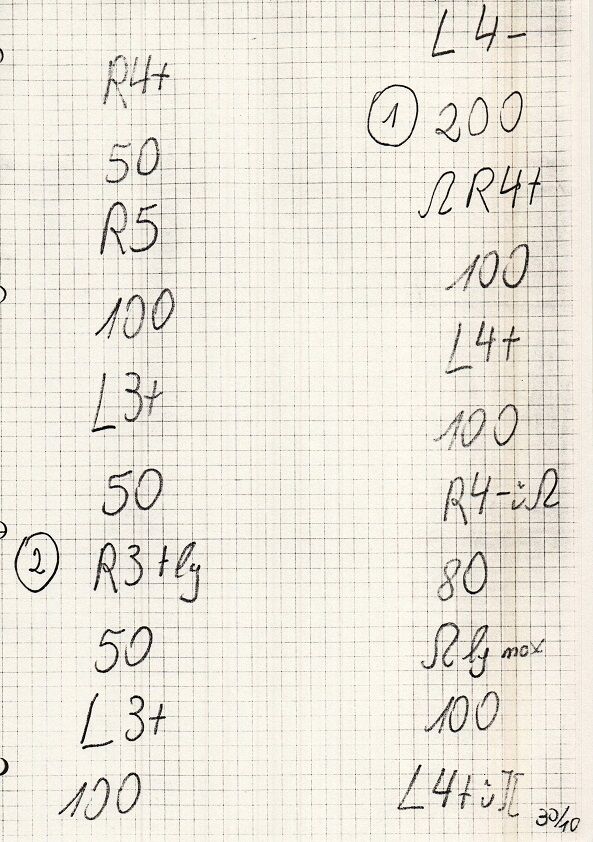 R4+
50
R5
100
L3+
50
② R3+lg
50
L3+
100
L4-
① 200
Ω R4+
100
L4+
100
R4-üΩ
80
Ω lg max
100
L4+ü][
30/10